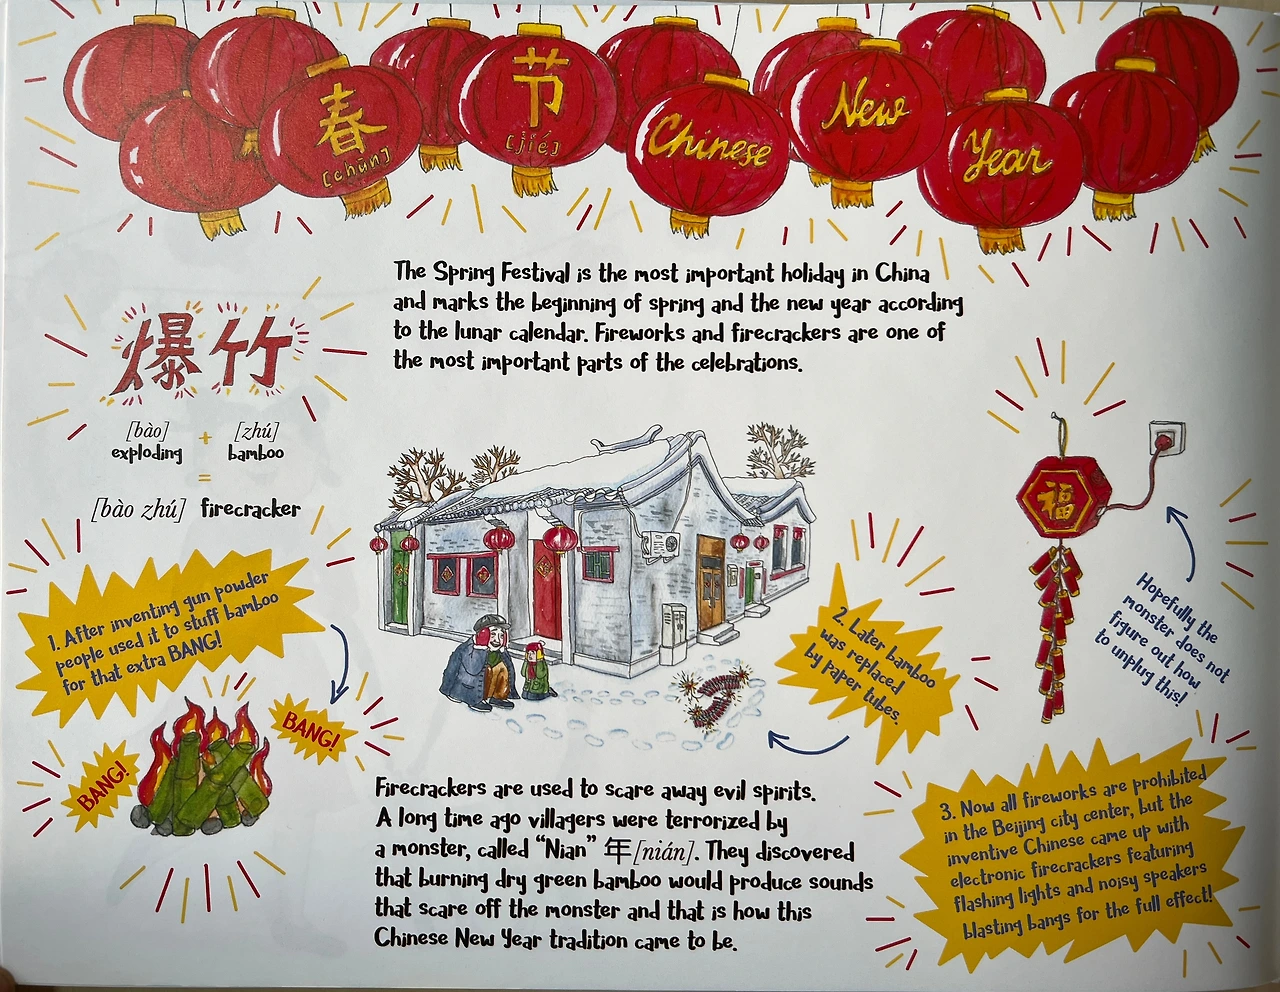 春
[chūn]
节
[jié]
Chinese
New
Year
The Spring Festival is the most important holiday in China
and marks the beginning of spring and the new year according
to the lunar calendar. Fireworks and firecrackers are one of
the most important parts of the celebrations.
爆竹
[bào] + [zhú]
exploding bamboo
=
[bào zhú] firecracker
1. After inventing gun powder
people used it to stuff bamboo
for that extra BANG!
BANG!
BANG!
2. Later bamboo
was replaced
by paper tubes.
福
Hopefully the
monster does not
figure out how
to unplug this!
Firecrackers are used to scare away evil spirits.
A long time ago villagers were terrorized by
a monster, called “Nian” 年[nián]. They discovered
that burning dry green bamboo would produce sounds
that scare off the monster and that is how this
Chinese New Year tradition came to be.
3. Now all fireworks are prohibited
in the Beijing city center, but the
inventive Chinese came up with
electronic firecrackers featuring
flashing lights and noisy speakers
blasting bangs for the full effect!